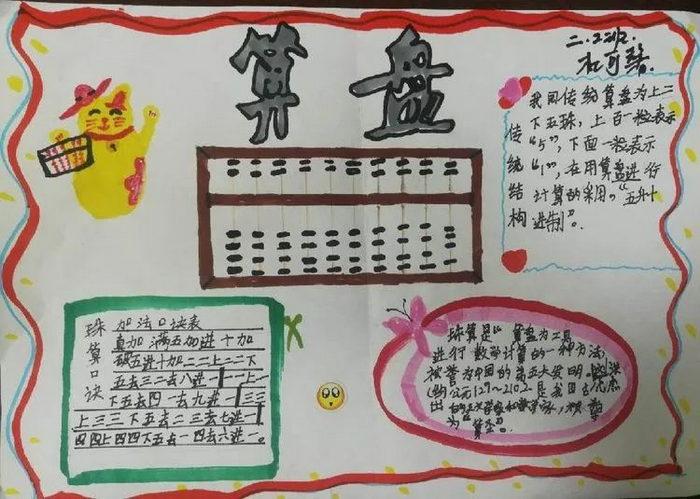 算盘
二.2班.
我国传统算盘为上二
下五珠，上面一粒表示
传 "5"，下面一粒表示
统 "1"，在用算盘进行
结 计算时采用"五升十
构 进制"。
珠算口诀
加法口诀表
直加 满五加进十加
破五进十加二二上二二下
五去三二去八进一上一
下五去四一去九进一三三
上三三下五去二三去七进一
四四上四四下五去一四去六进一。
珠算是"算盘为工具
进行数学计算的一种方法，
被誉为中国的第五大发明，
(约公元129~210.2是我国古代杰
出的天文学家和数学家，被尊
为"算圣"。